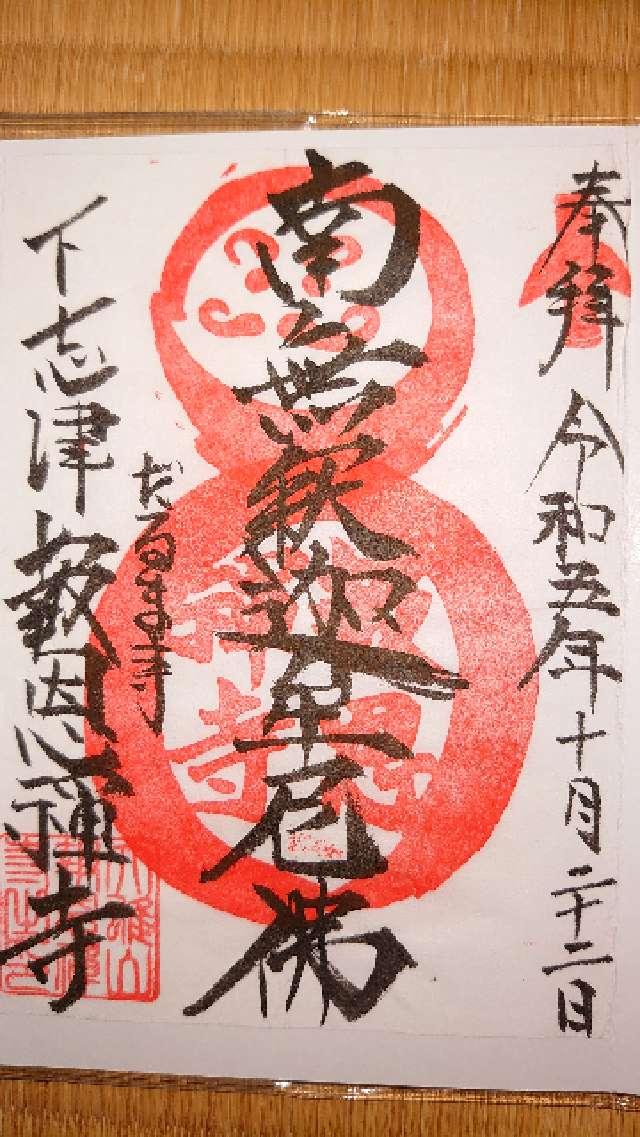 奉拜 令和五年十月二十二日
南無釈迦牟尼佛
だるま寺
下志津報恩禅寺